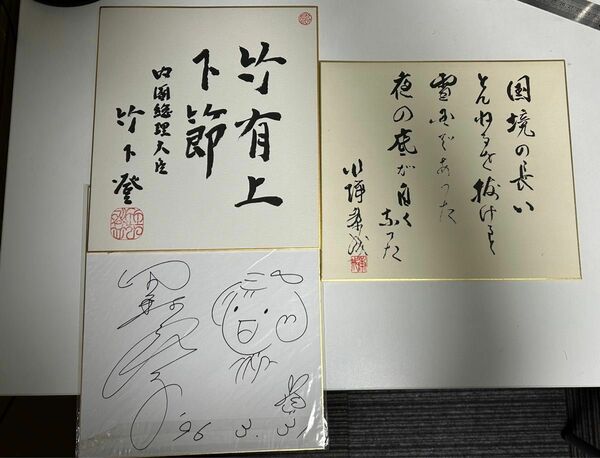 竹有上
下節
内閣総理大臣
竹下登
国境の長い
とんねるを抜けると
雪国であった
夜の底が白く
なった
川端康成
'96 3. 3